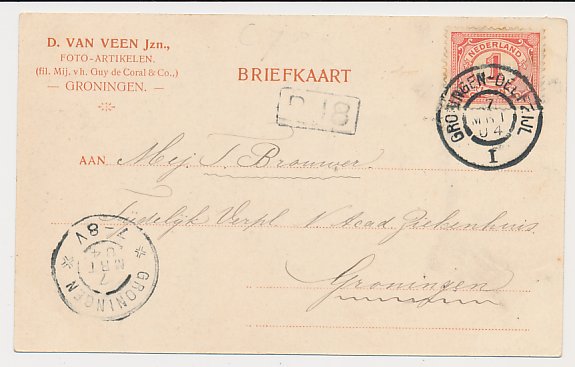 D. VAN VEEN Jzn.,
FOTO-ARTIKELEN.
(fil. Mij. v.h. Guy de Coral & Co.,)
— GRONINGEN. —
BRIEFKAART
NEDERLAND
1
GRONINGEN-DELFZIJL
MRT
04
I
AAN
Mej. T. Brouwer.
Tijdelijk Verpl. Acad Ziekenhuis.
Groningen
7-8V
7
MRT
04
GRONINGEN